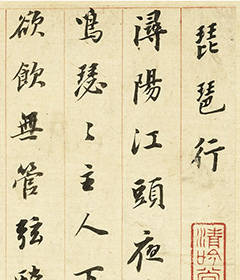 琵琶行
潯陽江頭夜
鳴瑟〻主人下
欲飲無管弦
清吟堂